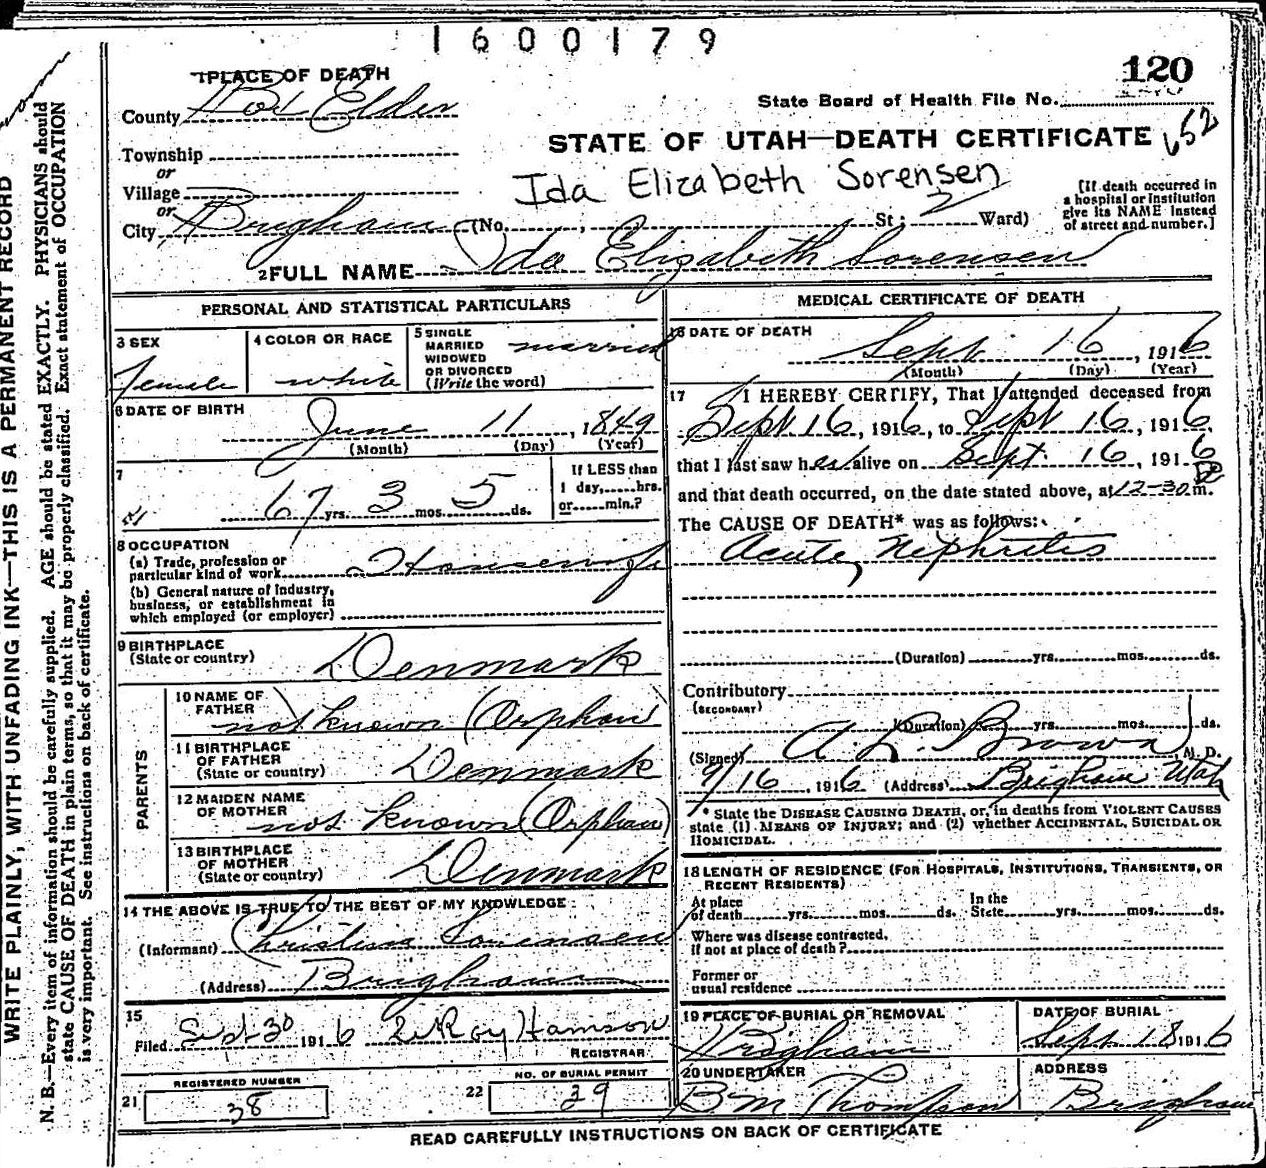 1600179
120
State Board of Health File No.
STATE OF UTAH—DEATH CERTIFICATE
52
1 PLACE OF DEATH
County Box Elder
Township
or
Village
or
City Brigham (No. , St; 2 Ward)
Ida Elizabeth Sorensen
[If death occurred in
a hospital or institution
give its NAME instead
of street and number.]
2 FULL NAME Ida Elizabeth Sorensen
PERSONAL AND STATISTICAL PARTICULARS
3 SEX
Female
4 COLOR OR RACE
white
5 SINGLE
MARRIED
WIDOWED
OR DIVORCED
(Write the word)
married
6 DATE OF BIRTH
June 11, 1849
(Month) (Day) (Year)
7
67 yrs. 3 mos. 5 ds.
If LESS than
1 day,.....hrs.
or.....min.?
8 OCCUPATION
(a) Trade, profession or
particular kind of work Housewife
(b) General nature of Industry,
business, or establishment in
which employed (or employer)
9 BIRTHPLACE
(State or country) Denmark
PARENTS
10 NAME OF
FATHER
not known (Orphan)
11 BIRTHPLACE
OF FATHER
(State or country) Denmark
12 MAIDEN NAME
OF MOTHER
not known (Orphan)
13 BIRTHPLACE
OF MOTHER
(State or country) Denmark
14 THE ABOVE IS TRUE TO THE BEST OF MY KNOWLEDGE:
(Informant) Christina Sorensen
(Address) Brigham
15
Filed Sept 30 1916 LeRoy Hamson
REGISTRAR
REGISTERED NUMBER
21 38
NO. OF BURIAL PERMIT
22 39
MEDICAL CERTIFICATE OF DEATH
16 DATE OF DEATH
Sept 16, 1916
(Month) (Day) (Year)
17 I HEREBY CERTIFY, That I attended deceased from
Sept. 16, 1916, to Sept 16, 1916,
that I last saw her alive on Sept. 16, 1916
and that death occurred, on the date stated above, at 12-30 m.
The CAUSE OF DEATH* was as follows:
Acute Nephritis
(Duration) yrs. mos. ds.
Contributory
(SECONDARY)
(Duration) yrs. mos. ds.
(Signed) A. D. Brown M. D.
9/16, 1916 (Address) Brigham Utah
* State the DISEASE CAUSING DEATH, or, in deaths from VIOLENT CAUSES
state (1) MEANS OF INJURY; and (2) whether ACCIDENTAL, SUICIDAL OR
HOMICIDAL.
18 LENGTH OF RESIDENCE (FOR HOSPITALS, INSTITUTIONS, TRANSIENTS, OR
RECENT RESIDENTS)
At place
of death yrs. mos. ds.
In the
State yrs. mos. ds.
Where was disease contracted,
if not at place of death?
Former or
usual residence
19 PLACE OF BURIAL OR REMOVAL
Brigham
DATE OF BURIAL
Sept. 18 1916
20 UNDERTAKER
B. M Thompson
ADDRESS
Brigham
READ CAREFULLY INSTRUCTIONS ON BACK OF CERTIFICATE
WRITE PLAINLY, WITH UNFADING INK—THIS IS A PERMANENT RECORD
N. B.—Every item of information should be carefully supplied. AGE should be stated EXACTLY. PHYSICIANS should
state CAUSE OF DEATH in plain terms, so that it may be properly classified. Exact statement of OCCUPATION
is very important. See instructions on back of certificate.